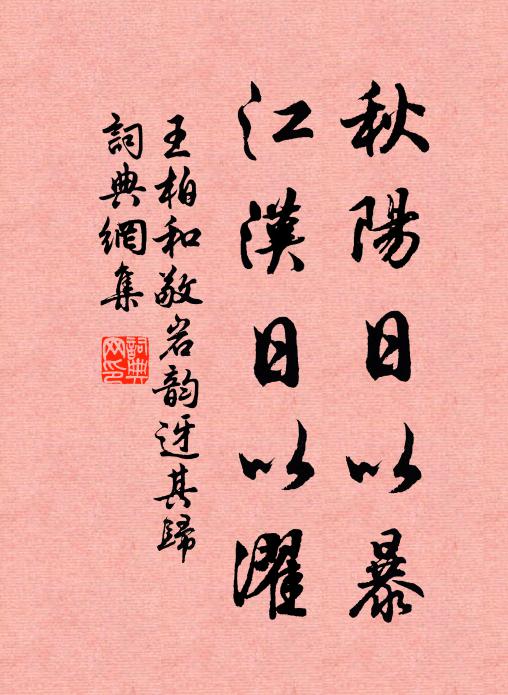 秋陽日以暴
江漢日以濯
王柏和敬岩韵迓其歸
詞典網集
詞典网印